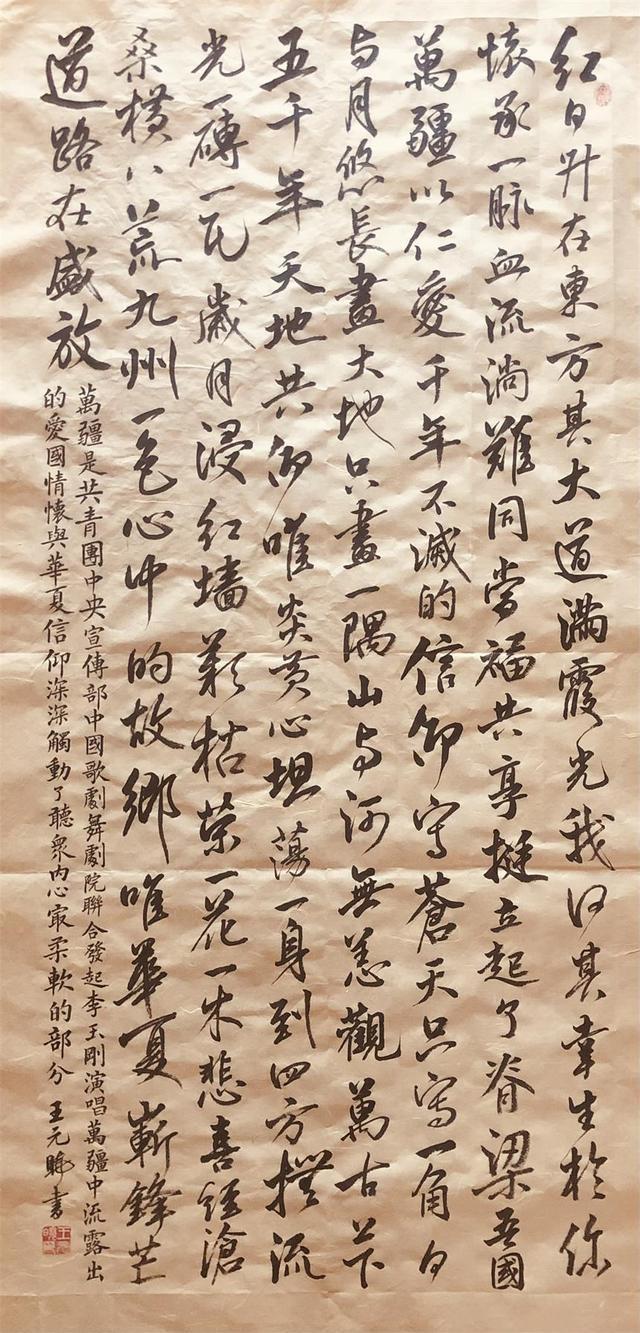 红日升在東方其大道滿霞光我何其幸生於你
懷承一脉血流淌難同當福共享挺立起了脊梁吾國
萬疆以仁愛千年不滅的信仰寫蒼天只寫一角日
与月悠長畫大地只畫一隅山与河無恙觀萬古下
五千年天地共仰唯炎黄心坦蕩一身到四方攬流
光一磚一瓦歲月浸红墙歎枯荣一花一木悲喜經滄
桑横八荒九州一色心中的故鄉唯華夏嶄鋒芒
道路在盛放
萬疆是共青團中央宣傳部中國歌劇舞劇院聯合發起李玉剛演唱萬疆中流露出
的愛國情懷與華夏信仰深深觸動了聽衆内心最柔軟的部分 王元書